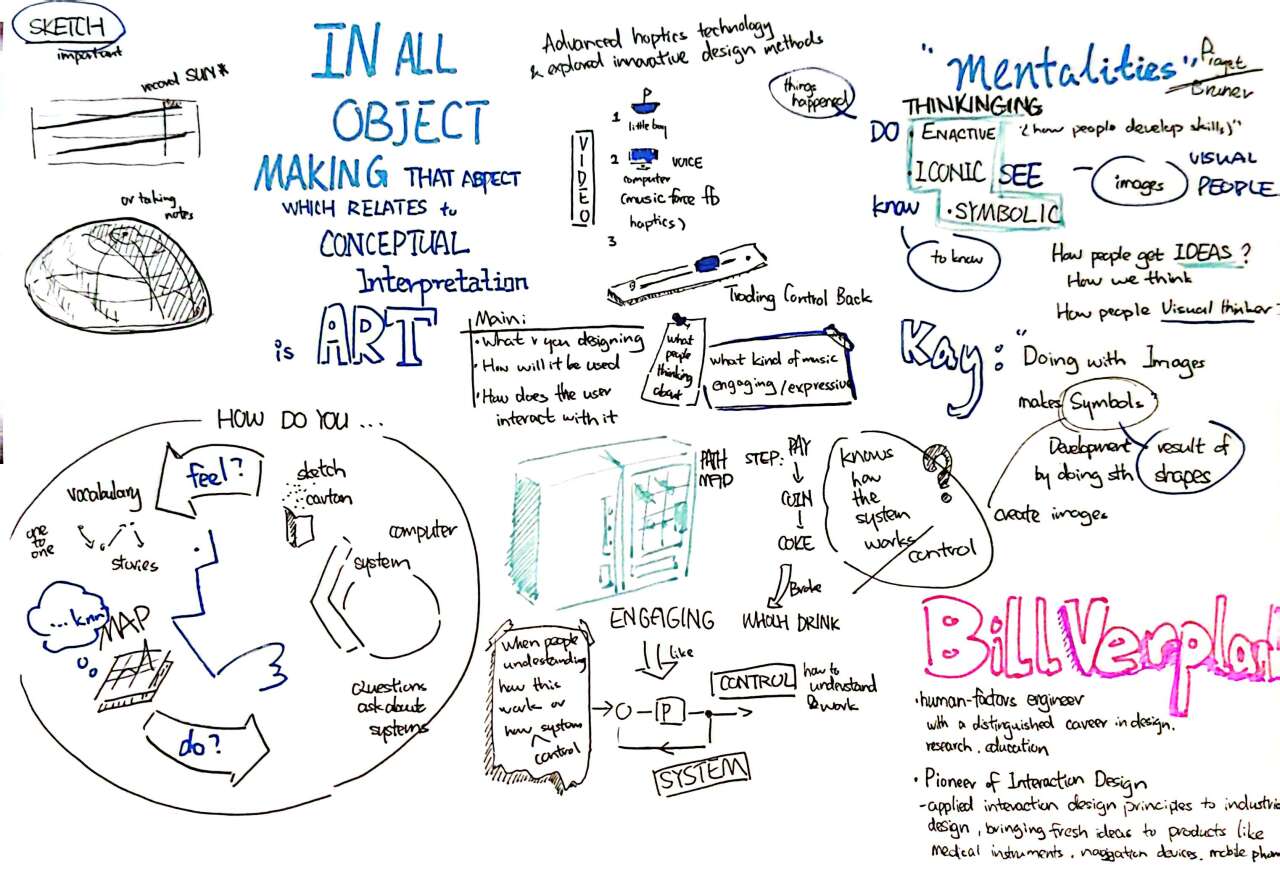 SKETCH
important
record SUN*
or taking
notes
IN ALL
OBJECT
MAKING THAT ASPECT
WHICH RELATES to
CONCEPTUAL
Interpretation
is ART
Advanced haptics technology
& explored innovative design methods
VIDEO
1
little boy
2 VOICE
computer
(music force fb
haptics)
3
Trading Control Back
Main:
• What r you designing
• How will it be used
• How does the user
interact with it
what
people
thinking
about
what kind of music
engaging / expressive
things
happened
"mentalities"
Piaget
Bruner
THINKINGING
DO • ENACTIVE "(how people develop skills)"
• ICONIC SEE - images VISUAL
PEOPLE
know • SYMBOLIC
to know
How people get IDEAS?
How we think
How people Visual thinker
Kay: "Doing with Images
makes Symbols"
Development
by doing sth
result of
shapes
create images
HOW DO YOU ...
feel?
vocabulary
one
to
one
stories
sketch
cartoon
computer
system
... know
MAP
Questions
ask about
systems
do?
PATH
MAP
STEP: PAY
COIN
COKE
Broke
WHOLH DRINK
knows
how
the
system
works
?
control
ENGAGING
like
when people
understanding
how this
work or
how system
control
P
CONTROL
how to
understand
& work
SYSTEM
Bill Verplank
• human-factors engineer
with a distinguished career in design,
research, education
• Pioneer of Interaction Design
- applied interaction design principles to industria
design, bringing fresh ideas to products like
medical instruments, navigation devices, mobile phon